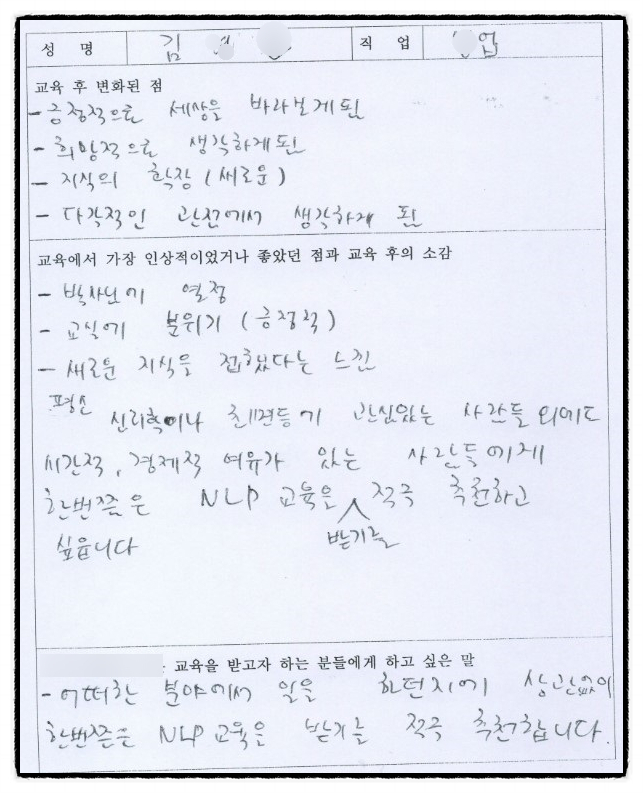 성 명 김 직 업 업
교육 후 변화된 점
- 긍정적으로 세상을 바라보게된
- 희망적으로 생각하게된
- 지식의 확장 (새로운)
- 다각적인 관점에서 생각하게 된
교육에서 가장 인상적이었거나 좋았던 점과 교육 후의 소감
- 박사님에 열정
- 교실에 분위기 (긍정적)
- 새로운 지식을 접했다는 느낀
평소 심리학이나 최면등에 관심있는 사람들 외에도
시간적, 경제적 여유가 있는 사람들에게
한번쯤은 NLP 교육은 받기를 적극 추천하고
싶습니다
교육을 받고자 하는 분들에게 하고 싶은 말
- 어떠한 분야에서 일을 하던지에 상관없이
한번쯤은 NLP 교육은 받기를 적극 추천합니다.